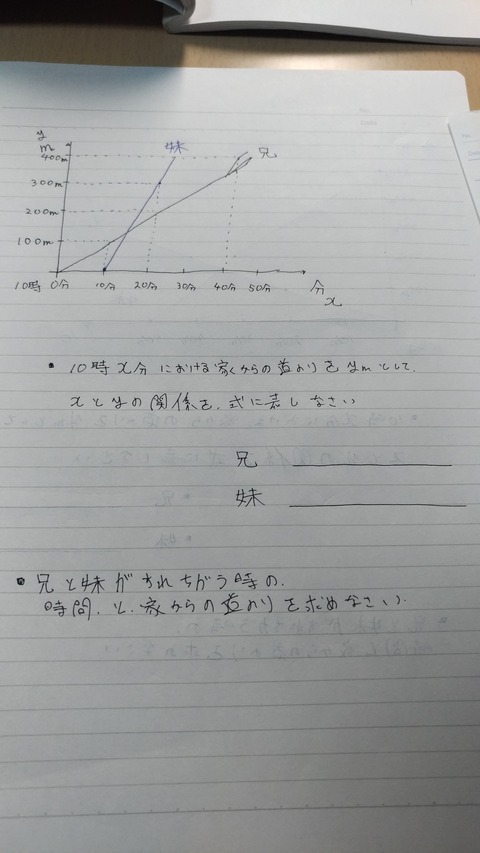 y
m
妹
兄
400m
300m
200m
100m
10時 0分 10分 20分 30分 40分 50分 分 x
• 10時x分における家からの道のりをymとして、
xとyの関係を、式に表しなさい
兄
妹
• 兄と妹がすれちがう時の、
時間、と、家からの道のりを求めなさい.